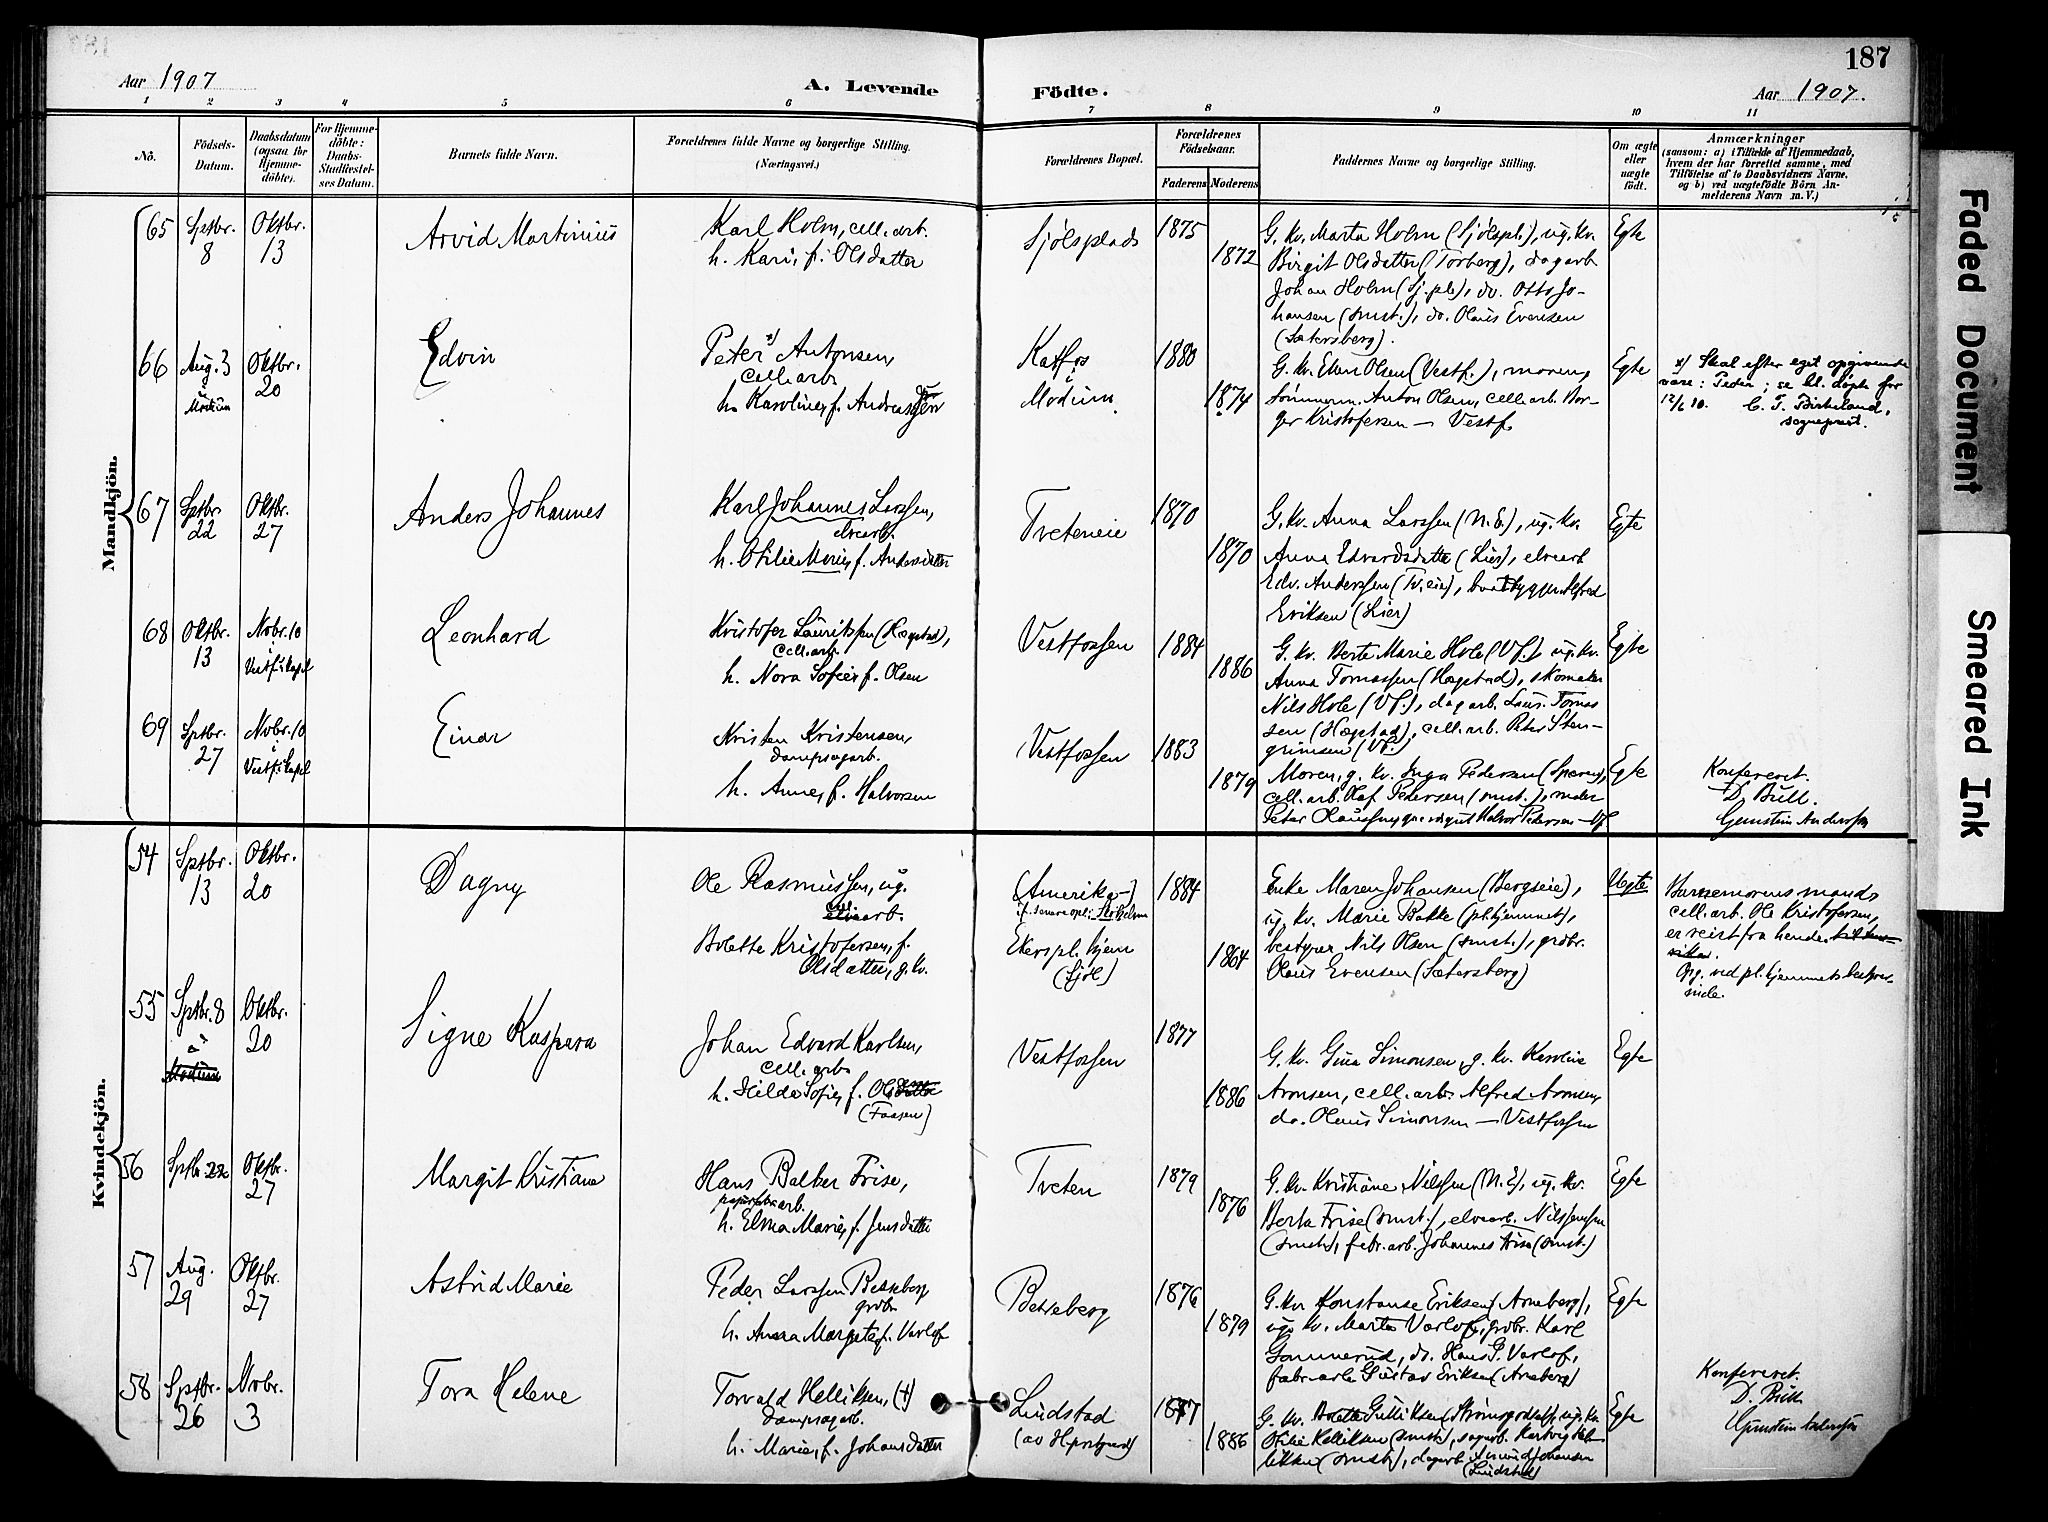 187
Aar 1907
A. Levende
Födte.
Aar 1907.
1 2 3 4 5 6 7 8 9 10 11
No.
Födsels-
Datum.
Daabsdatum
(ogsaa for
Hjemme-
döbte).
For Hjemme-
döbte:
Daabs-
Stadfæstel-
ses Datum.
Barnets fulde Navn.
Forældrenes fulde Navne og borgerlige Stilling.
(Næringsvei.)
Forældrenes Bopæl.
Forældrenes
Födselsaar.
Faderens Moderens
Faddernes Navne og borgerlige Stilling.
Om ægte
eller
uægte
födt.
Anmærkninger
(saasom: a) i Tilfælde af Hjemmedaab,
hvem der har forrettet samme, med
Tilföielse af to Daabsvidners Navne,
og b) ved uægtefödte Börn An-
melderens Navn m. V.)
Mandkjön.
65
Sptbr.
8
Oktbr.
13
Arvid Martinius
Karl Holm, cell. arb.
h. Kari, f. Olsdatter
Sjölsplads
1875
1872
G. kv. Marta Holm (Sjölspl.), ug. kv.
Birgit Olsdatter (Torberg), dagarb
Johan Holm (Sj. pl.), do. Otto Jo-
hansen (smst.), do. Olaus Evensen
(Sætersberg).
Egte
66
Aug. 3
i
Modum
Oktbr.
20
Edvin
Peter x) Antonsen,
cell. arb.
h. Karoline, f. Andreassen
Katfos
i
Modum
1880
1874
G. kv. Elen Olsen (Vestf.), moren,
tömmerm. Anton Olsen, cell. arb. Bor-
ger Kristofersen — Vestf.
Egte
x) Skal efter eget opgivende
være: Peder; se bl. døpte for
12/6 10. C. T. Birkeland,
sogneprest.
67
Sptbr.
22
Oktbr.
27
Anders Johannes
Karl Johannes Larssen,
elvearb.
h. Otilie Marie, f. Andersdatter
Tveteneie
1870
1870
G. kv. Anna Larssen (N. E.), ug. kv.
Anna Edvardsdatter (Lier), elvearb
Edv. Anderssen (Tv. eie), baatbygger Alfred
Eriksen (Lier)
Egte
68
Oktbr.
13
Novbr. 10
i
Vestf. kapel
Leonhard
Kristofer Lauritssen (Hægstad),
cell. arb.
h. Nora Sofie, f. Olsen
Vestfossen
1884
1886
G. kv. Berte Marie Hole (Vf.), ug. kv.
Anna Tomassen (Hægstad), skomaker
Nils Hole (Vf.), dagarb. Laur. Tomas
sen (Hægstad), cell. arb. Peter Sten-
grimsen (Vf.)
Egte
69
Sptbr.
27
Novbr. 10
i
Vestf. kapel
Einar
Kristen Kristensen,
dampsagarb.
h. Anne, f. Halvorsen
Vestfossen
1883
1879
Moren, g. kv. Inga Pedersen
cell. arb. Olaf Pedersen (smst.), maler
Peter Halvor Pedersen — Vf.
Egte
Konfereret.
D. Bull.
Gunstein Anderssen
Kvindekjön.
54
Sptbr.
13
Oktbr.
20
Dagny
Ole Rasmussen, ug.
cell.
elvearb.
Bolette Kristofersen, f.
Olsdatter, g. kv.
(Amerika)
Ekers pl. hjem
(Sjöl)
1884
1864
Enke Maren Johansen (Bergseie),
ug. kv. Marie Bakke (pl. hjemmet),
bestyrer Nils Olsen (smst.), grdbr.
Olaus Evensen (Sætersberg)
Uegte
Barnemorens mand,
cell. arb. Ole Kristofersen,
er reist fra hende
Opg. ved pl. hjemmets bestyrer-
inde.
55
Sptbr. 8
i
Modum
Oktbr.
20
Signe Kaspara
Johan Edvard Karlsen,
cell. arb
h. Hilda Sofie, f. Olsdatter
(Faasen)
Vestfossen
1877
1886
G. kv. Gina Simonsen, g. kv. Karoline
Aronsen, cell. arb. Alfred Aronsen,
do. Olaus Simonsen — Vestfossen
Egte
56
Sptbr. 22
Oktbr.
27
Margit Kristiane
Hans Balker Frise,
papirfabr. arb.
h. Elma Marie, f. Jensdatter
Tveten
1879
1876
G. kv. Kristiane Nilssen (N. E.), ug. kv.
Berta Frise (smst.), elvearb. Nils Jenssen
(smst.), fabr. arb. Johannes Frise (smst.)
Egte
57
Aug.
29
Oktbr.
27
Astrid Marie
Peder Larssen Besseberg
grdbr.
h. Anna Margrete, f. Varlof
Besseberg
1876
1879
G. kv. Konstanse Eriksen (Aneberg),
ug. kv. Marta Varlof, grdbr. Karl
Gommerud, do. Hans G. Varlof,
fabr. arb. Gustav Eriksen (Aneberg)
Egte
58
Sptbr.
26
Novbr.
3
Tora Helene
Torvald Helliksen, (†)
dampsagarb.
h. Marie, f. Johansdatter
Lindstad
(av H. prstgrd)
1877
1886
G. kv. Bolette Gulliksen (Strömsgodset), ug. kv.
Otilie Helliksen (smst.), sagarb. Hartvig Hel-
liksen (smst.), dagarb. Amund Johansen
(Lindstad)
Egte
Konfereret.
D. Bull
Gunstein Anderssen
Faded Document
Smeared Ink